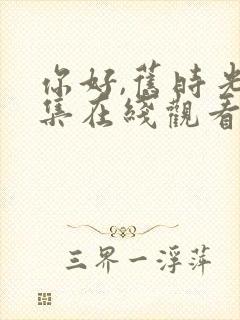 你好,舊時光
集在綫觀看
三界一浮萍